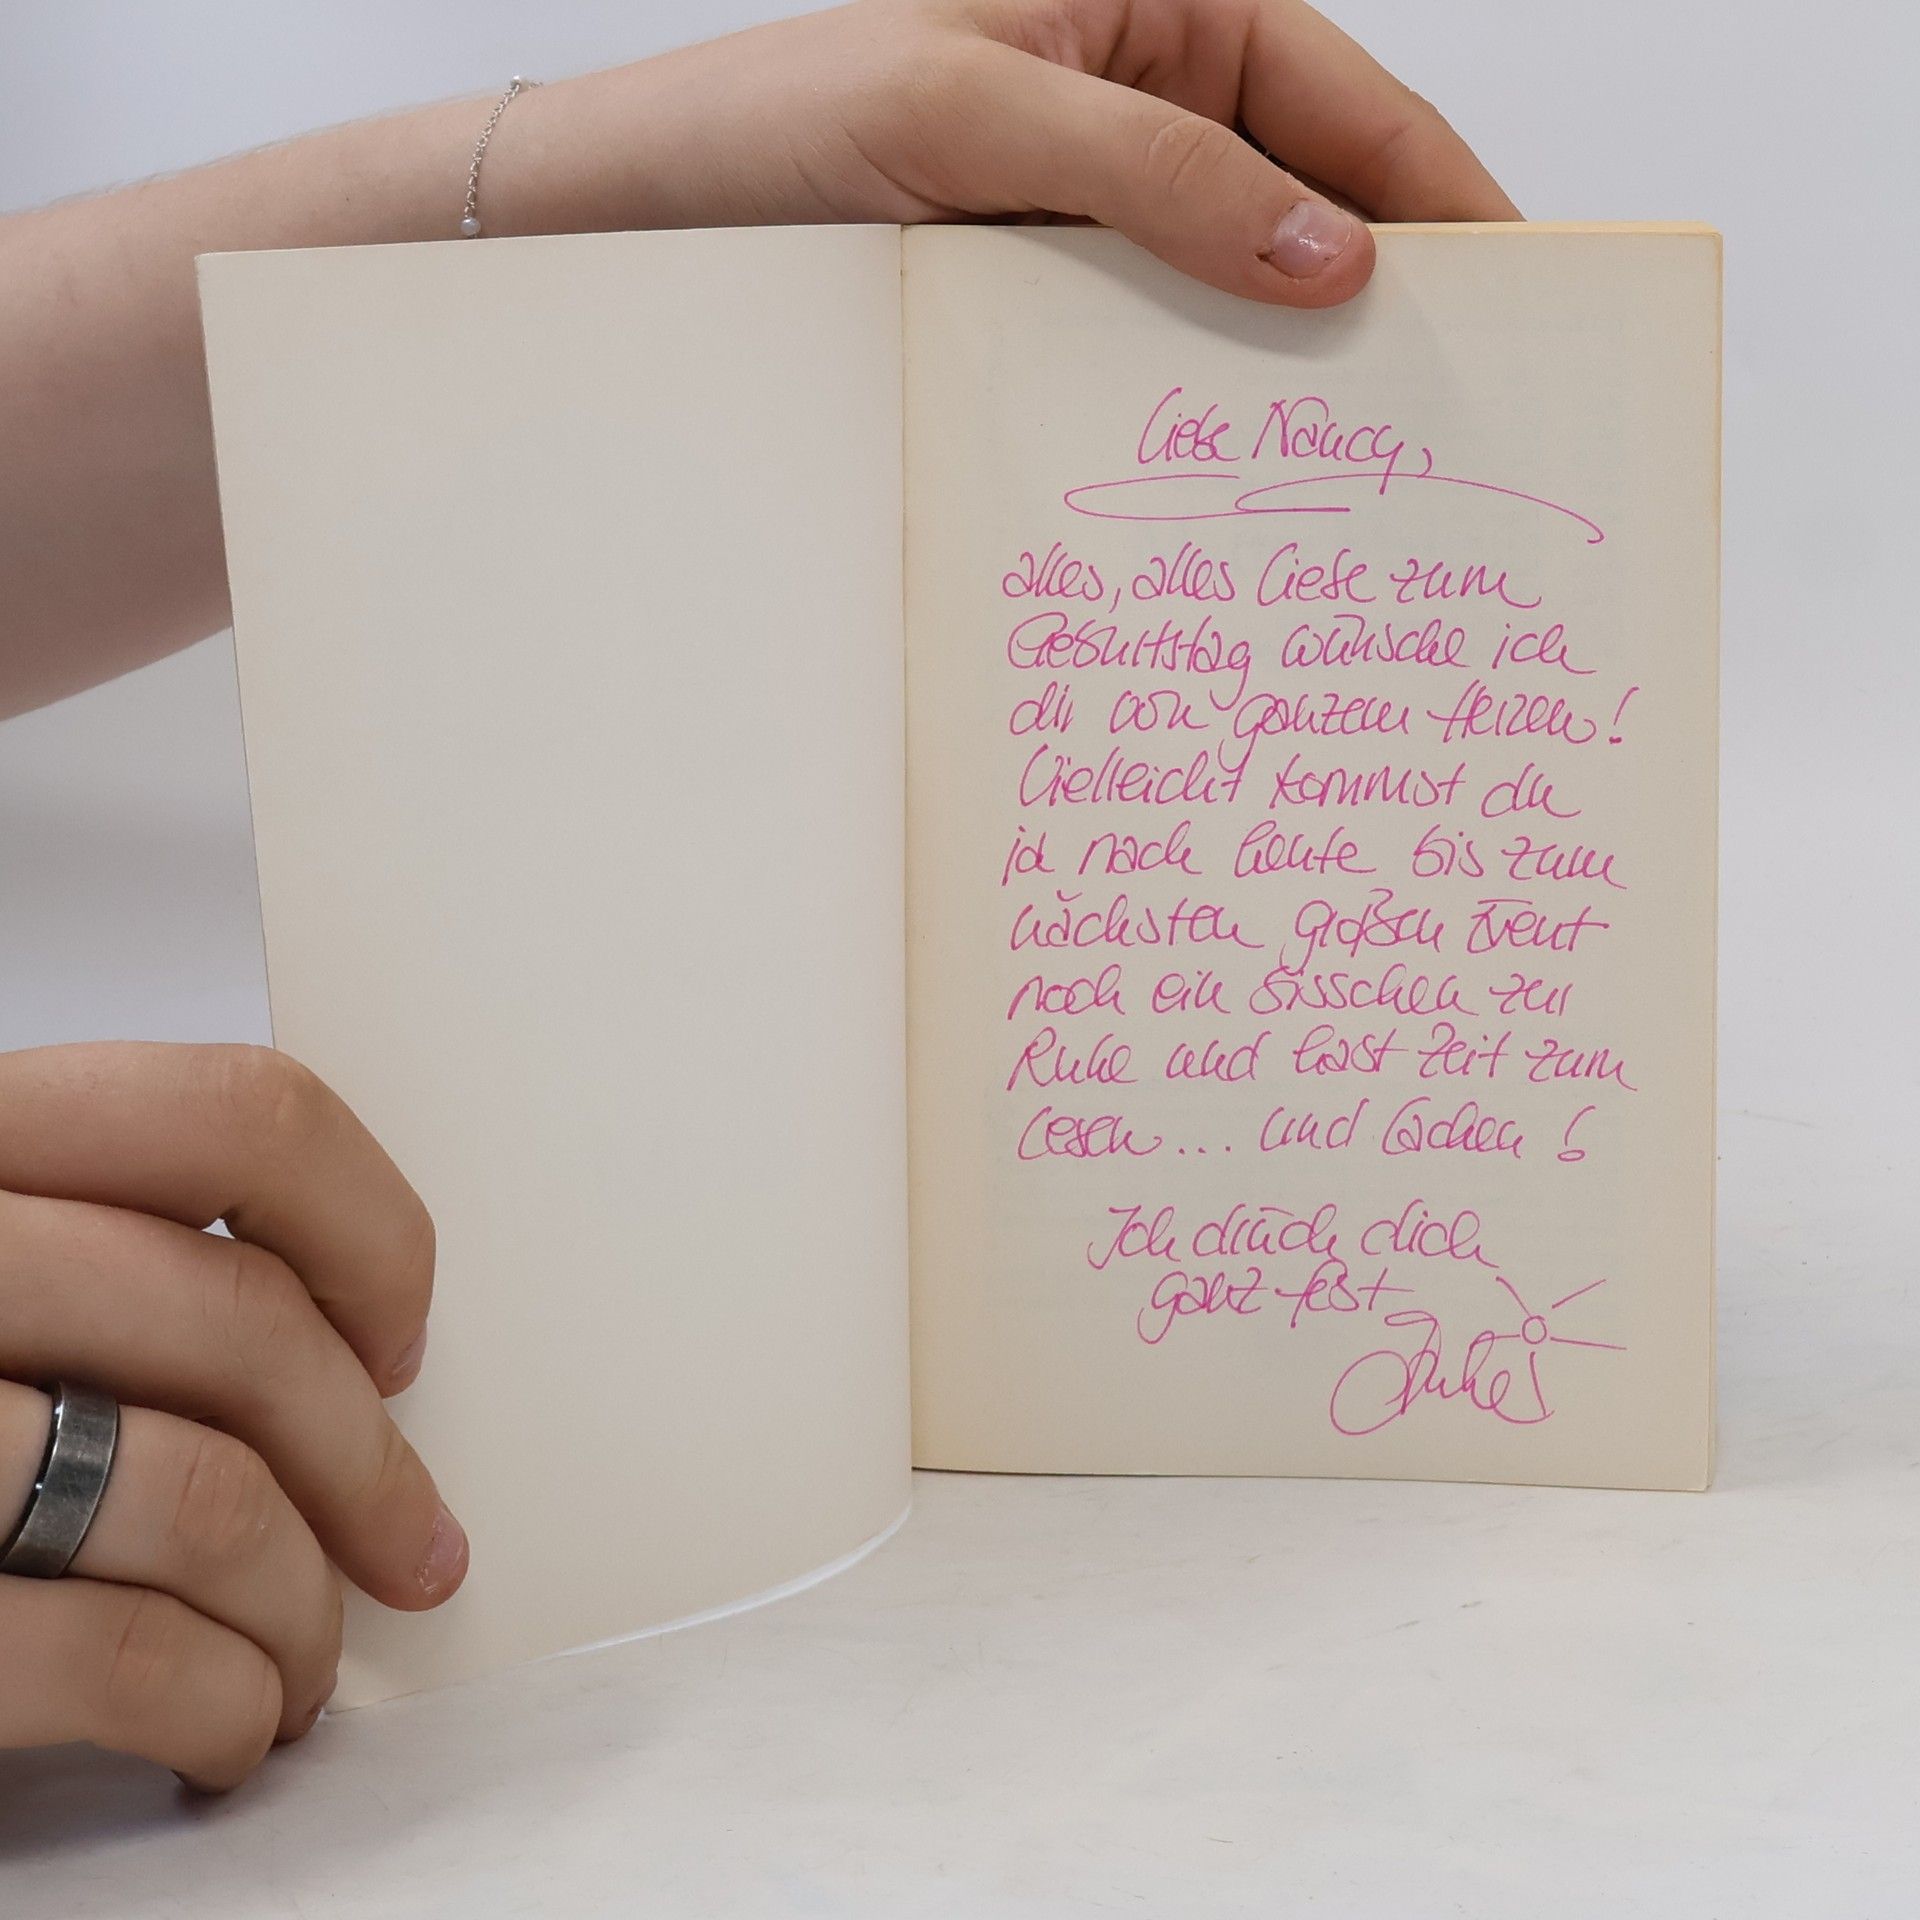 Liebe Nancy,
alles, alles Liebe zum
Geburtstag wünsche ich
dir von ganzem Herzen!
Vielleicht kommst du
ja nach heute bis zum
nächsten großen Event
noch ein bisschen zur
Ruhe und hast Zeit zum
Lesen... und Lachen!
Ich drück dich
ganz fest